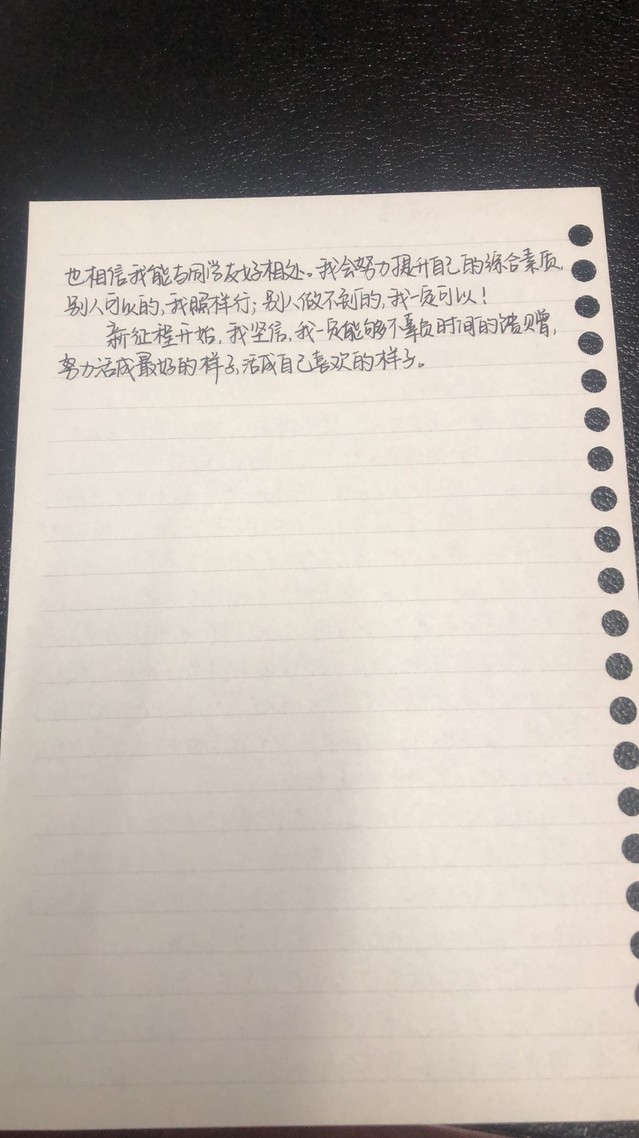 也相信我能与同学友好相处。我会努力提升自己的综合素质,
别人可以的,我照样行;别人做不到的,我一定可以!
新征程开始,我坚信,我一定能够不辜负时间的馈赠,
努力活成最好的样子,活成自己喜欢的样子。